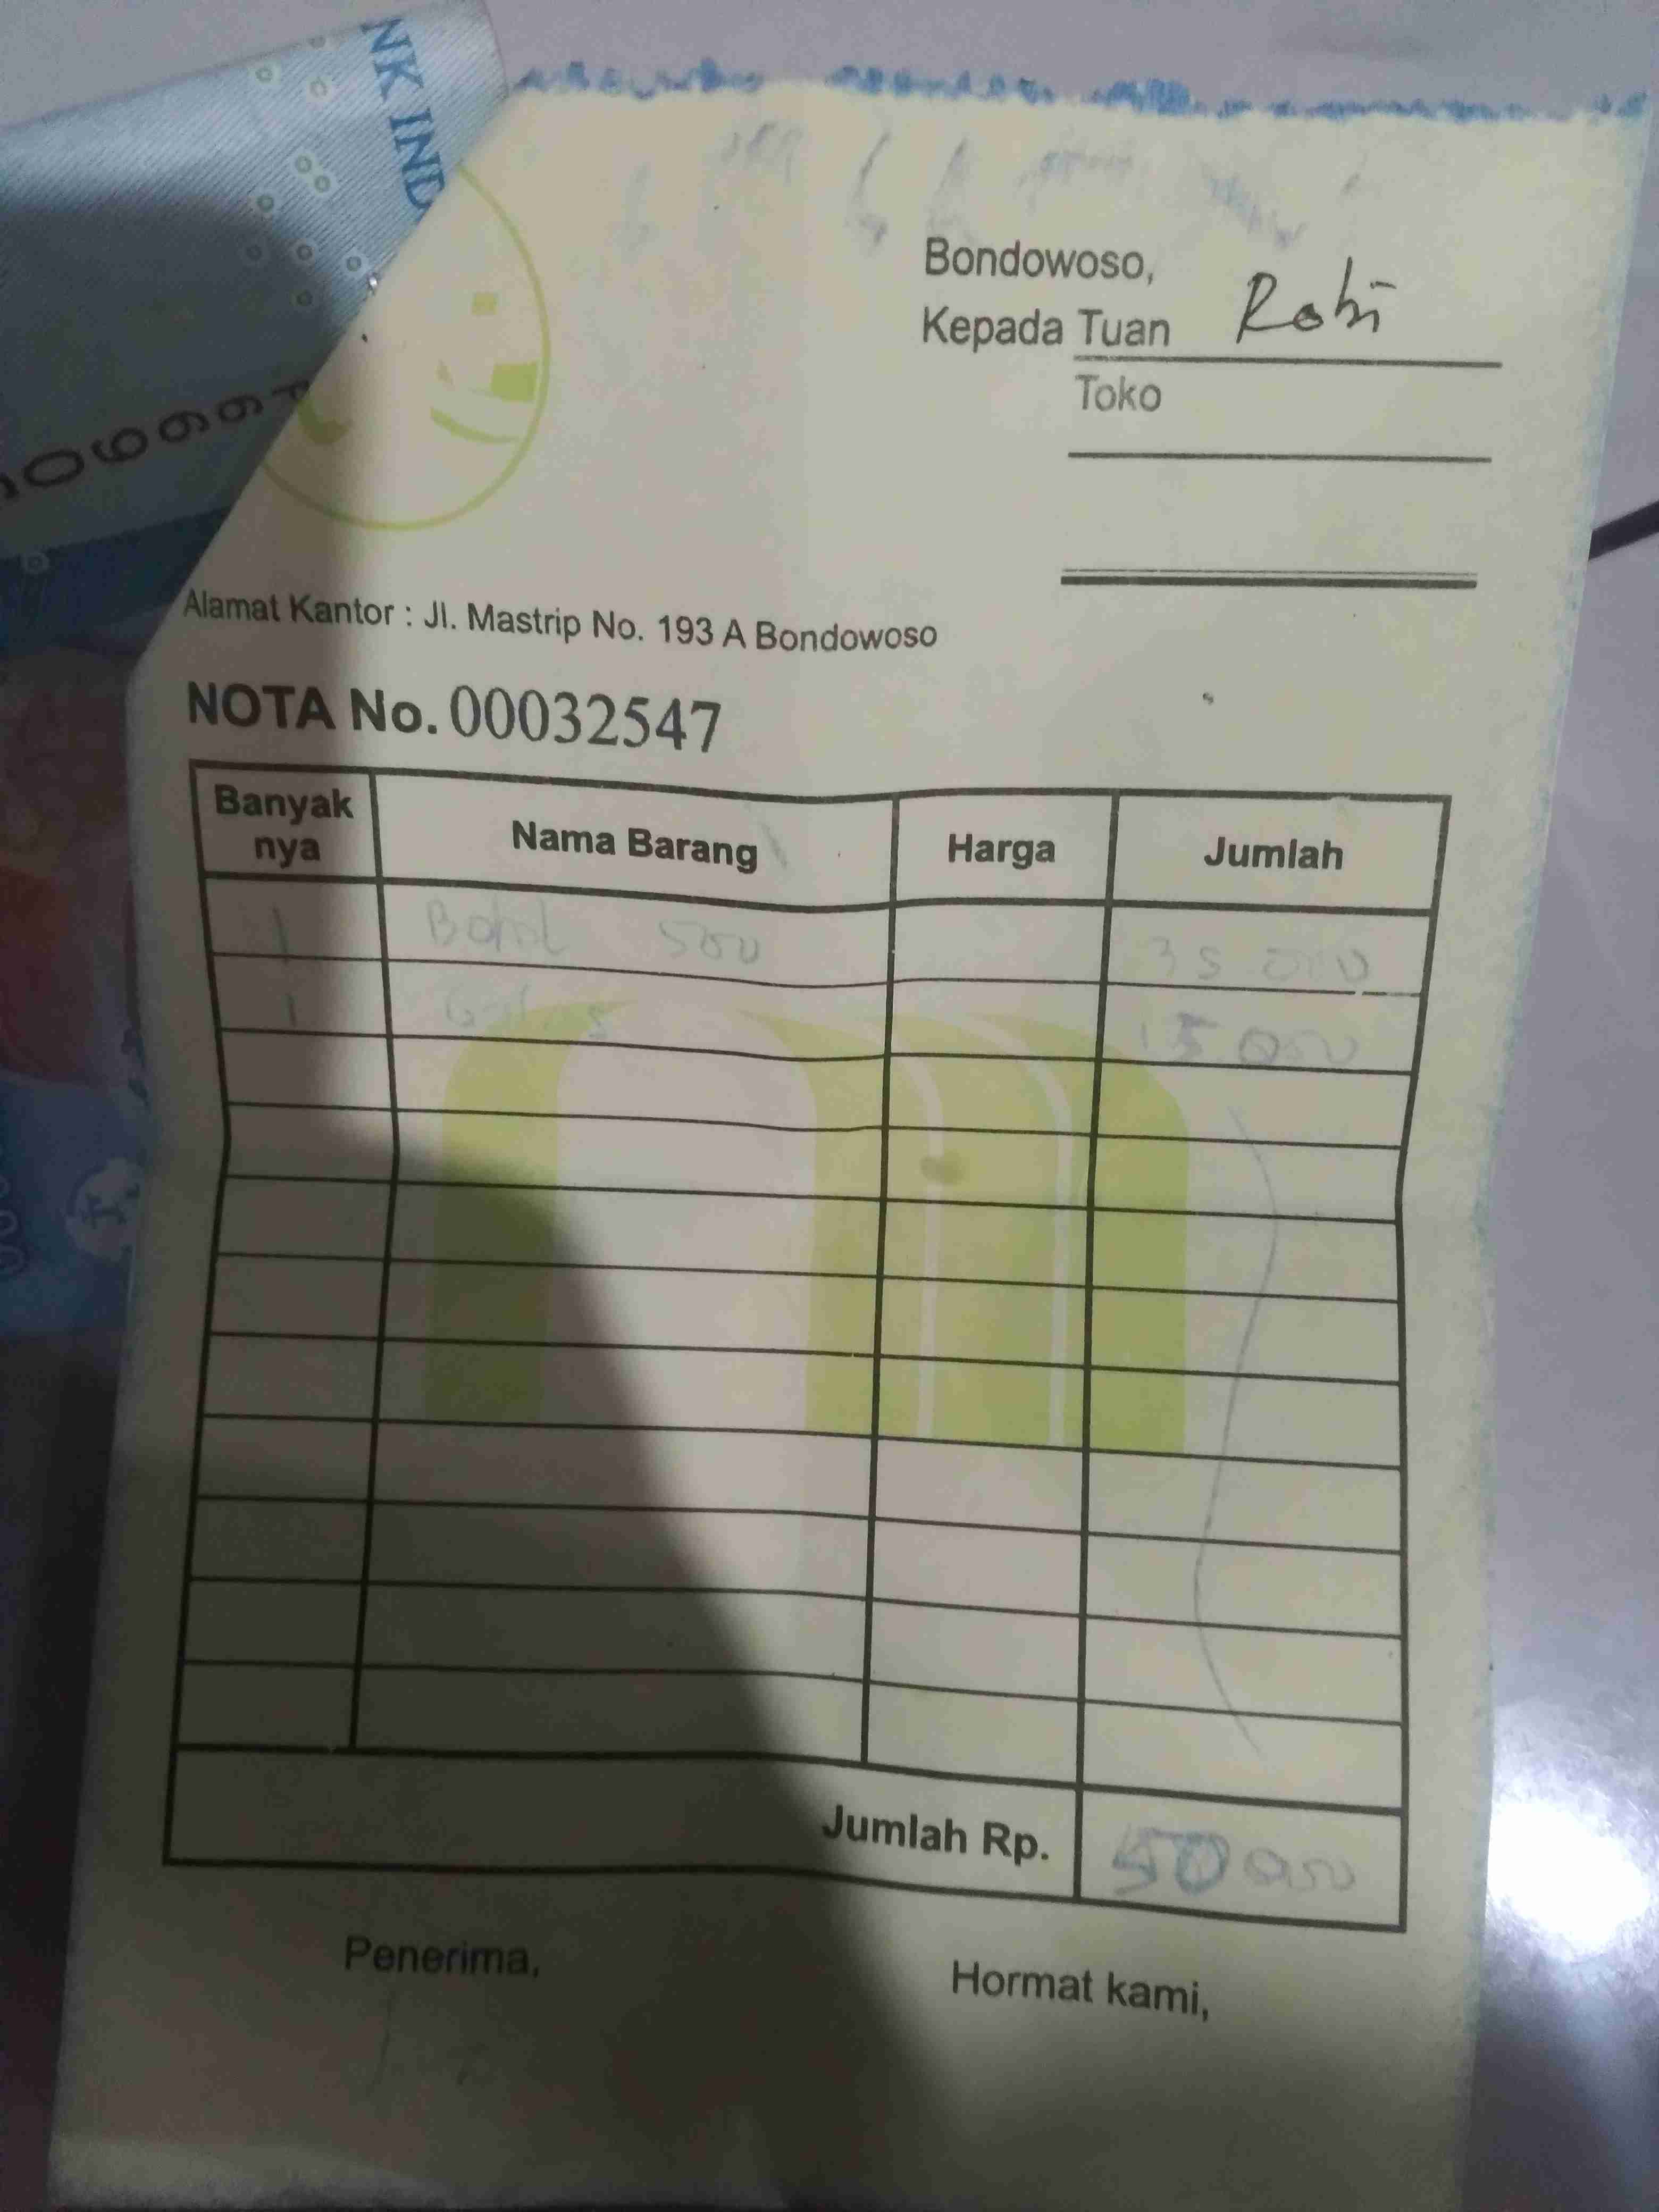 NK IND
Bondowoso,
Kepada Tuan Robi
Toko
Alamat Kantor : Jl. Mastrip No. 193 A Bondowoso
NOTA No. 00032547
Banyak nya Nama Barang Harga Jumlah
1 Botol 500 35 000
1 15 000
Jumlah Rp. 50 000
Penerima,
Hormat kami,